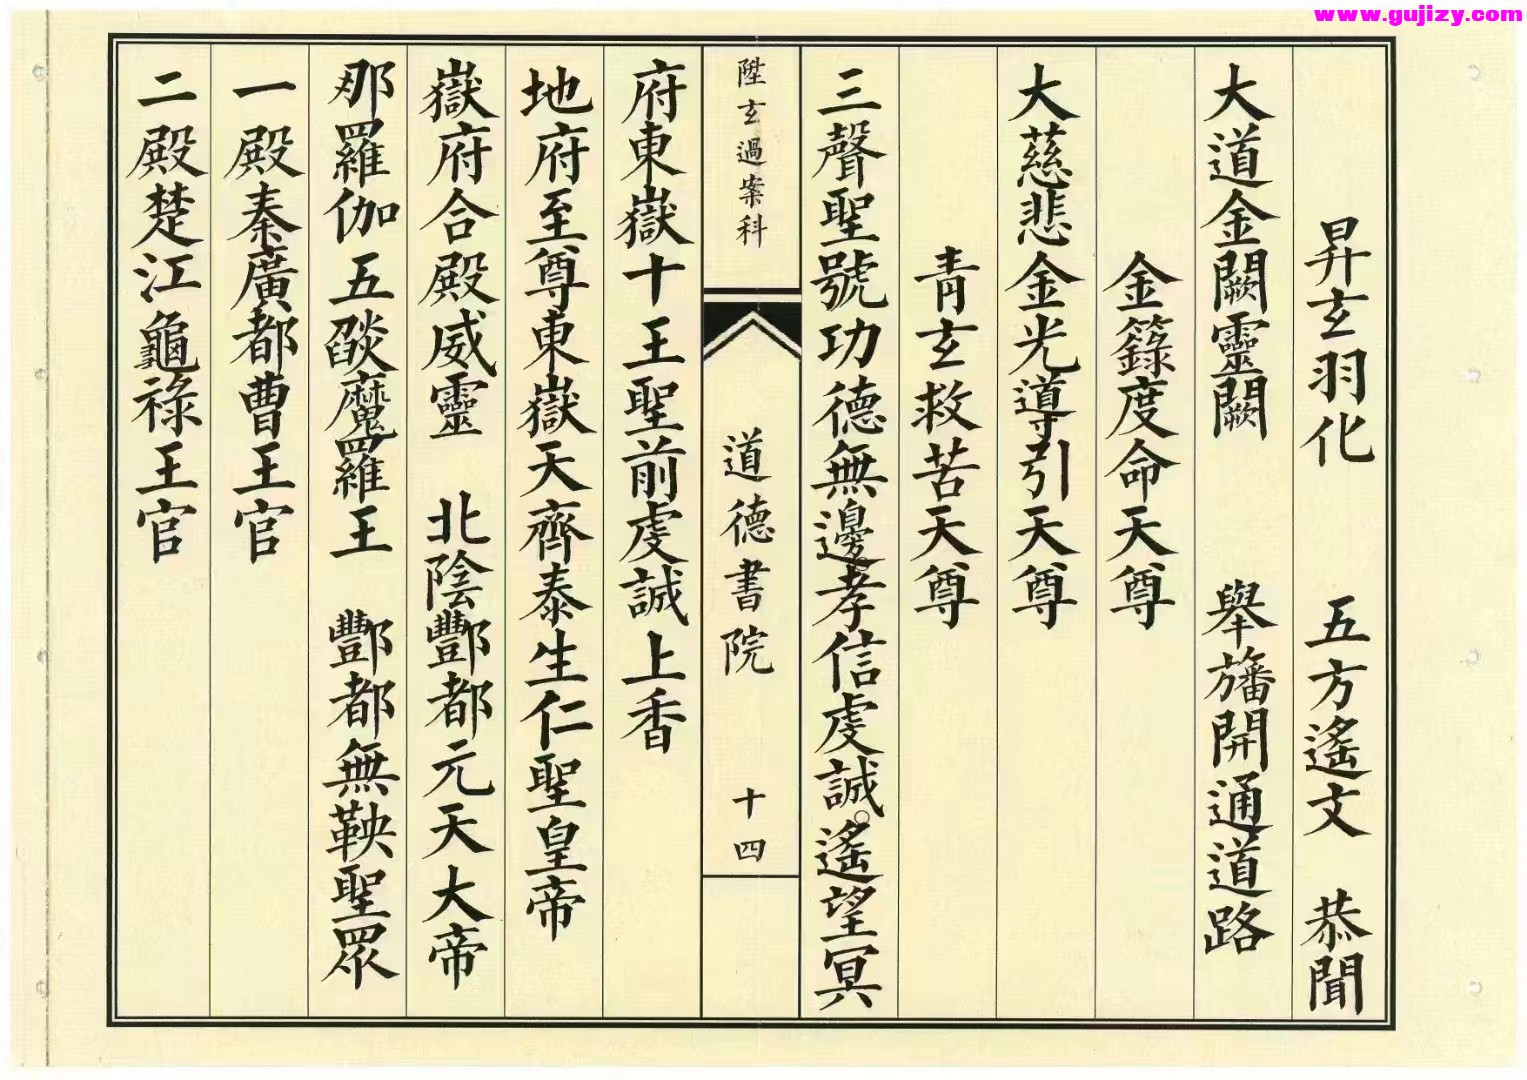 www.gujizy.com
昇玄羽化 五方遙文 恭聞
大道金闕靈闕 舉旛開通道路
金籙度命天尊
大慈悲金光導引天尊
青玄救苦天尊
三聲聖號功德無邊。孝信虔誠。遙望冥
陞玄過案科
道德書院
十四
府東嶽十王聖前虔誠上香
地府至尊東嶽天齊泰生仁聖皇帝
嶽府合殿威靈 北陰酆都元天大帝
那羅伽五燄魔羅王 酆都無鞅聖眾
一殿秦廣都曹王官
二殿楚江龜祿王官